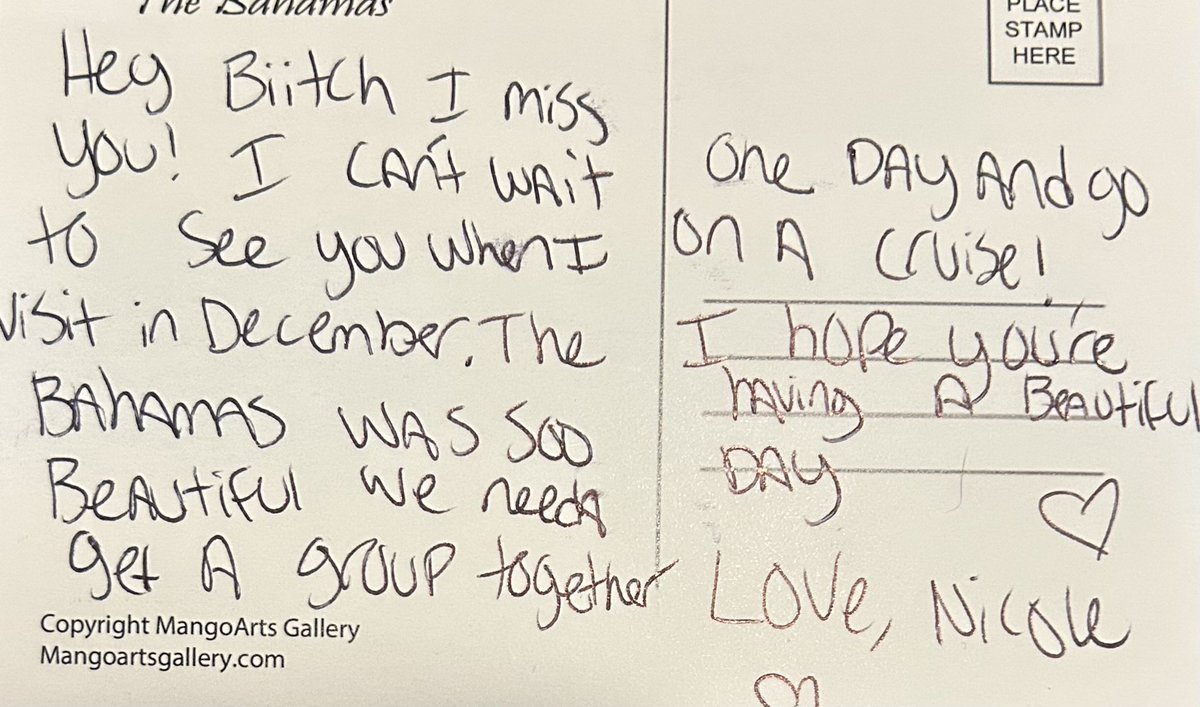 The Bahamas
Hey Biitch I miss
you! I CAn't WAit
to See you when I
visit in December. The
BAhAmAS WAS Soo
BeAutiful We needA
get A group together
Copyright MangoArts Gallery
Mangoartsgallery.com
PLACE
STAMP
HERE
One DAy And go
on A cruise!
I hope you're
hAving A BeAutiful
DAy
Love, Nicole